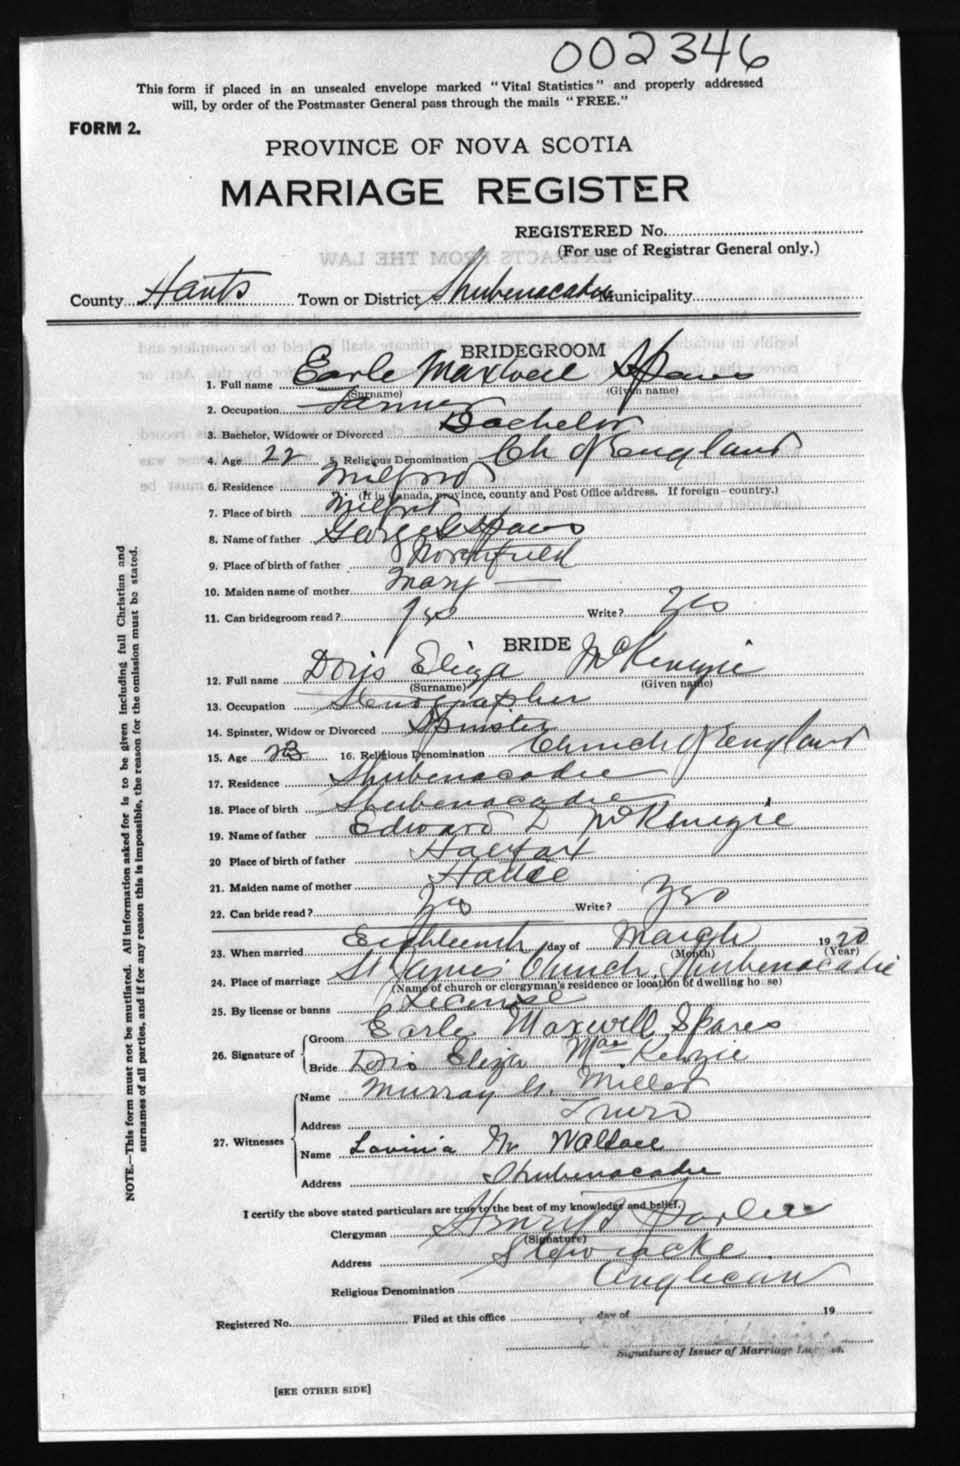 002346
This form if placed in an unsealed envelope marked "Vital Statistics" and properly addressed
will, by order of the Postmaster General pass through the mails "FREE."
FORM 2.
PROVINCE OF NOVA SCOTIA
MARRIAGE REGISTER
REGISTERED No.
(For use of Registrar General only.)
County Hants Town or District Shubenacadie Municipality
BRIDEGROOM
1. Full name Earle Maxwell Spares
(Surname) (Given name)
2. Occupation Farmer
3. Bachelor, Widower or Divorced Bachelor
4. Age 22 5. Religious Denomination Ch of England
6. Residence Milford
(If in Canada, province, county and Post Office address. If foreign - country.)
7. Place of birth Milford
8. Name of father George Spares
9. Place of birth of father Northfield
10. Maiden name of mother Mary —
11. Can bridegroom read? yes Write? yes
BRIDE
12. Full name Doris Eliza McKenzie
(Surname) (Given name)
13. Occupation Stenographer
14. Spinster, Widow or Divorced Spinster
15. Age 23 16. Religious Denomination Church of England
17. Residence Shubenacadie
18. Place of birth Shubenacadie
19. Name of father Edward D McKenzie
20 Place of birth of father Halifax
21. Maiden name of mother Hattie
22. Can bride read? yes Write? yes
23. When married Eighteenth day of March 1920
(Month) (Year)
24. Place of marriage St James Church, Shubenacadie
(Name of church or clergyman's residence or location of dwelling house)
25. By license or banns License
26. Signature of Groom Earle Maxwell Spares
Bride Doris Eliza MacKenzie
27. Witnesses Name Murray G. Miller
Address Truro
Name Lavinia M Wallace
Address Shubenacadie
I certify the above stated particulars are true to the best of my knowledge and belief.
Clergyman
(Signature)
Address Stewiacke
Religious Denomination Anglican
Registered No. Filed at this office day of 19
Signature of Issuer of Marriage
[SEE OTHER SIDE]
NOTE.—This form must not be mutilated. All information asked for is to be given including full Christian and
surnames of all parties, and if for any reason this is impossible, the reason for the omission must be stated.